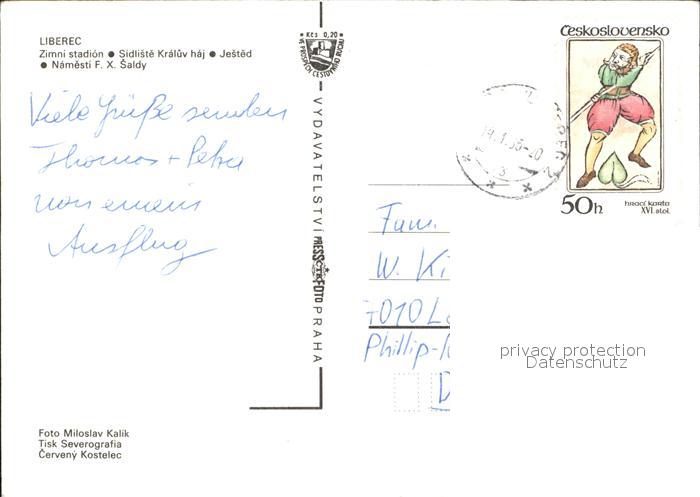 LIBEREC
Zimní stadión ● Sídliště Králův háj ● Ještěd
● Náměstí F. X. Šaldy
Kčs 0,20
VE PROSPĚCH CESTOVNÍHO RUCHU
Československo
50h
hrací karta
XVI. stol.
Viele Grüße senden
Thomas + Petra
von einem
Ausflug
VYDAVATELSTVÍ PRESSFOTO PRAHA
ČTK
Fam.
W. Ki
7010 Le
Phillip-
D
privacy protection
Datenschutz
Foto Miloslav Kalík
Tisk Severografia
Červený Kostelec